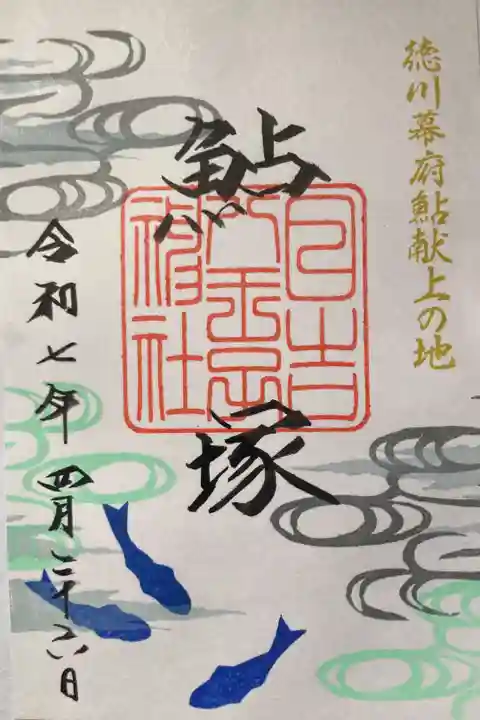 徳川幕府鮎献上の地
鮎塚
日吉
八王子
神社
令和七年 四月二十六日